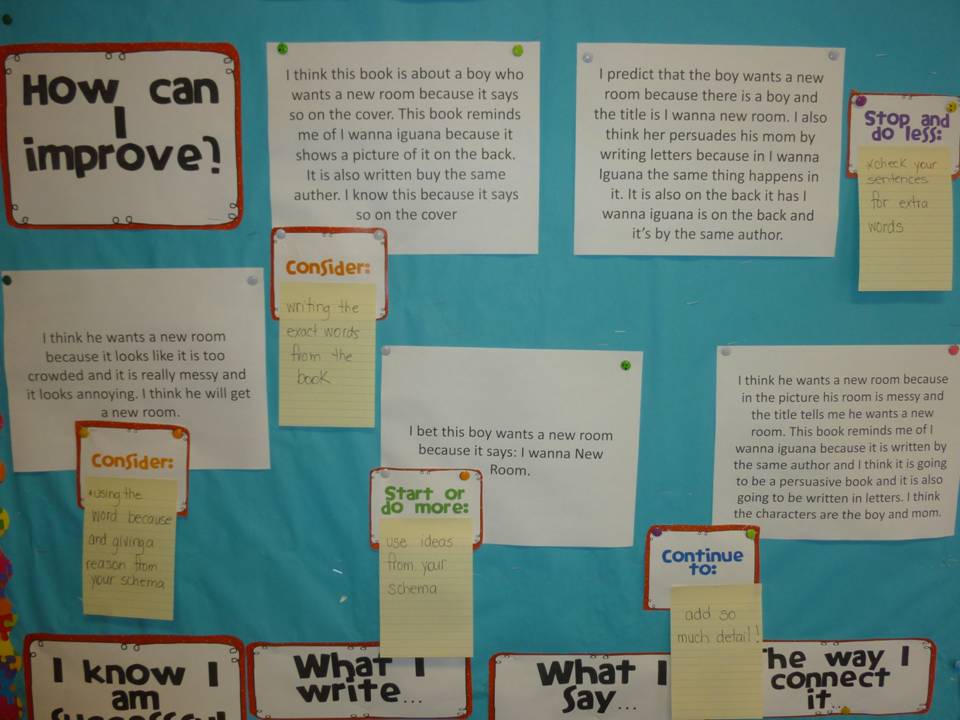 How can
I
improve?
I think this book is about a boy who
wants a new room because it says
so on the cover. This book reminds
me of I wanna iguana because it
shows a picture of it on the back.
It is also written buy the same
auther. I know this because it says
so on the cover
Consider:
writing the
exact words
from the
book
I predict that the boy wants a new
room because there is a boy and
the title is I wanna new room. I also
think her persuades his mom by
writing letters because in I wanna
Iguana the same thing happens in
it. It is also on the back it has I
wanna iguana is on the back and
it's by the same author.
Stop and
do less:
*check your
sentences
for extra
words
I think he wants a new room
because it looks like it is too
crowded and it is really messy and
it looks annoying. I think he will get
a new room.
Consider:
*using the
word because
and giving a
reason from
your schema
I bet this boy wants a new room
because it says: I wanna New
Room.
Start or
do more:
use ideas
from your
schema
I think he wants a new room because
in the picture his room is messy and
the title tells me he wants a new
room. This book reminds me of I
wanna iguana because it is written by
the same author and I think it is going
to be a persuasive book and it is also
going to be written in letters. I think
the characters are the boy and mom.
Continue
to:
add so
much detail!
I know I
am
successful
What I
write...
What I
say...
The way I
connect
it...